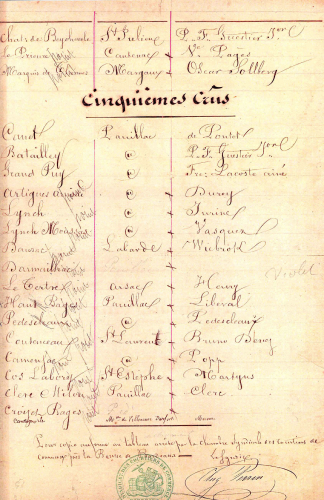 Chat. de Beychevelle St Julien P. F. Guestier Jor
Le Prieuré Cantenac Ve Pages
Marquis de Margaux Oscar Sollberg
Cinquièmes Crûs
Canet Pauillac de Pontet
Batailley id P. F. Guestier Jor
Grand Puy id Fre: Lacoste aîné
Artigues Arnaud id Duroy
Lynch id Jurine
Lynch Moussas id Vasquez
Dauzac Labarde Wiebrok
Darmailhac
Violet
Le Tertre Arsac Henry
Haut Bages Pauillac Libéral
Pedesclaux id Pedesclaux
Coutanceau St Laurent Bruno Devez
Camensac id Popp
Cos Labory St Estèphe Martyns
Clerc Milon Pauillac Clerc
Croizet Bages
Cantemerle Mme de Villeneuve Durfort Macau
Pour copie conforme au tableau arrêté par la chambre syndicale des Courtiers de
Commerce près la Bourse de Bordeaux
Le Syndic